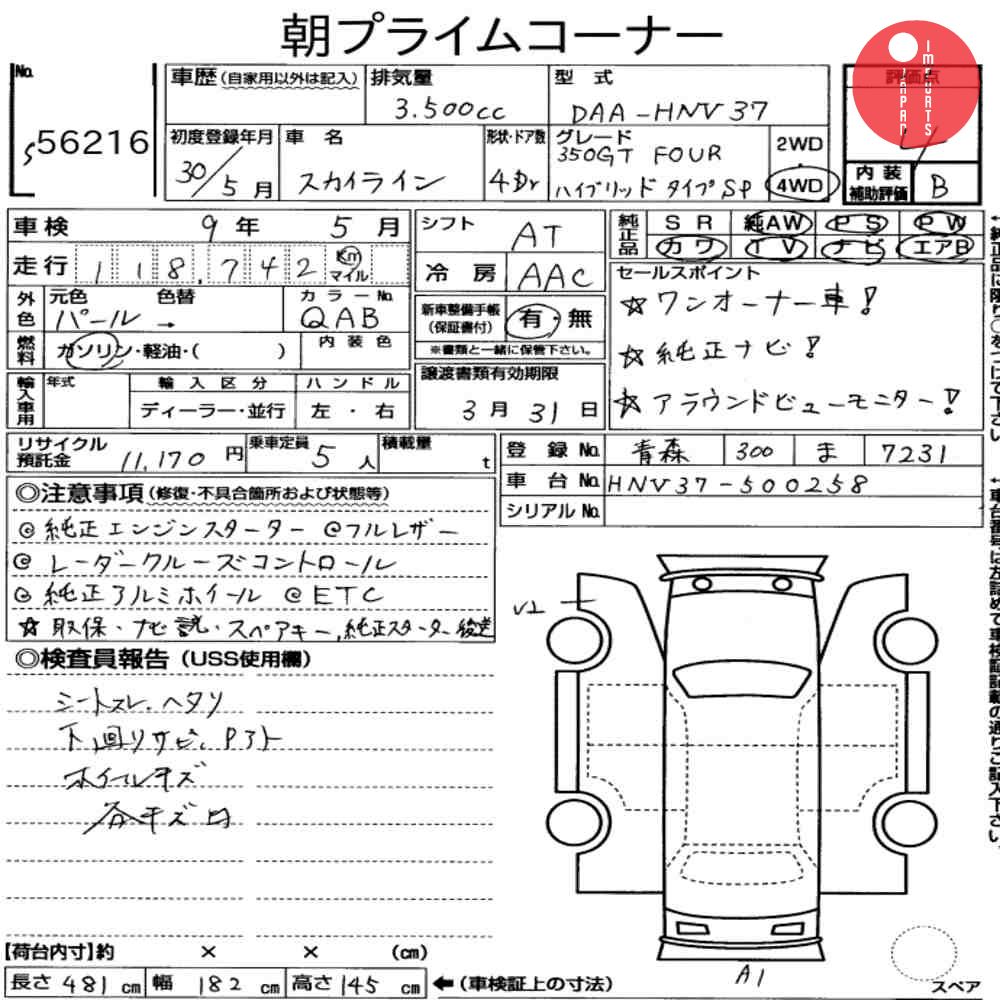 朝プライムコーナー
IMPORTS JAPAN
No. S56216
車歴 (自家用以外は記入)
排気量 3.500cc
型式 DAA-HNV37
評価点
初度登録年月 30/5月
車名 スカイライン
形状・ドア数 4Dr
グレード 350GT FOUR
ハイブリッド タイプSP
2WD ・ 4WD
内装補助評価 B
車検 9年 5月
シフト AT
純正品 SR 純AW PS PW
カワ TV ナビ エアB
走行 118,742 Km マイル
冷房 AAC
セールスポイント
☆ワンオーナー車!
☆純正ナビ!
☆アラウンドビューモニター!
外色 元色 パール→ 色替
カラーNo. QAB
新車整備手帳(保証書付) 有・無
※書類と一緒に保管下さい。
燃料 ガソリン・軽油・( )
内装色
輸入車用 年式
輸入区分 ディーラー・並行
ハンドル 左・右
譲渡書類有効期限 3月31日
リサイクル預託金 11,170円
乗車定員 5人
積載量 t
登録No. 青森 300 ま 7231
車台No. HNV37-500258
シリアルNo.
◎注意事項 (修復・不具合箇所および状態等)
◎純正エンジンスターター ◎フルレザー
◎レーダークルーズコントロール
◎純正アルミホイール ◎ETC
☆取保・ナビ説・スペアキー,純正スターター後送
◎検査員報告 (USS使用欄)
シートスレ、ヘタリ
下回りサビ、
ホイールキズ
各キズ凹
U2
A1
【荷台内寸】約 × × (cm)
長さ 481 cm 幅 182 cm 高さ 145 cm ← (車検証上の寸法)
スペア
↑純正品に限り○をつけて下さい。
↑車台番号は左詰めで車検証記載の通りご記入下さい。